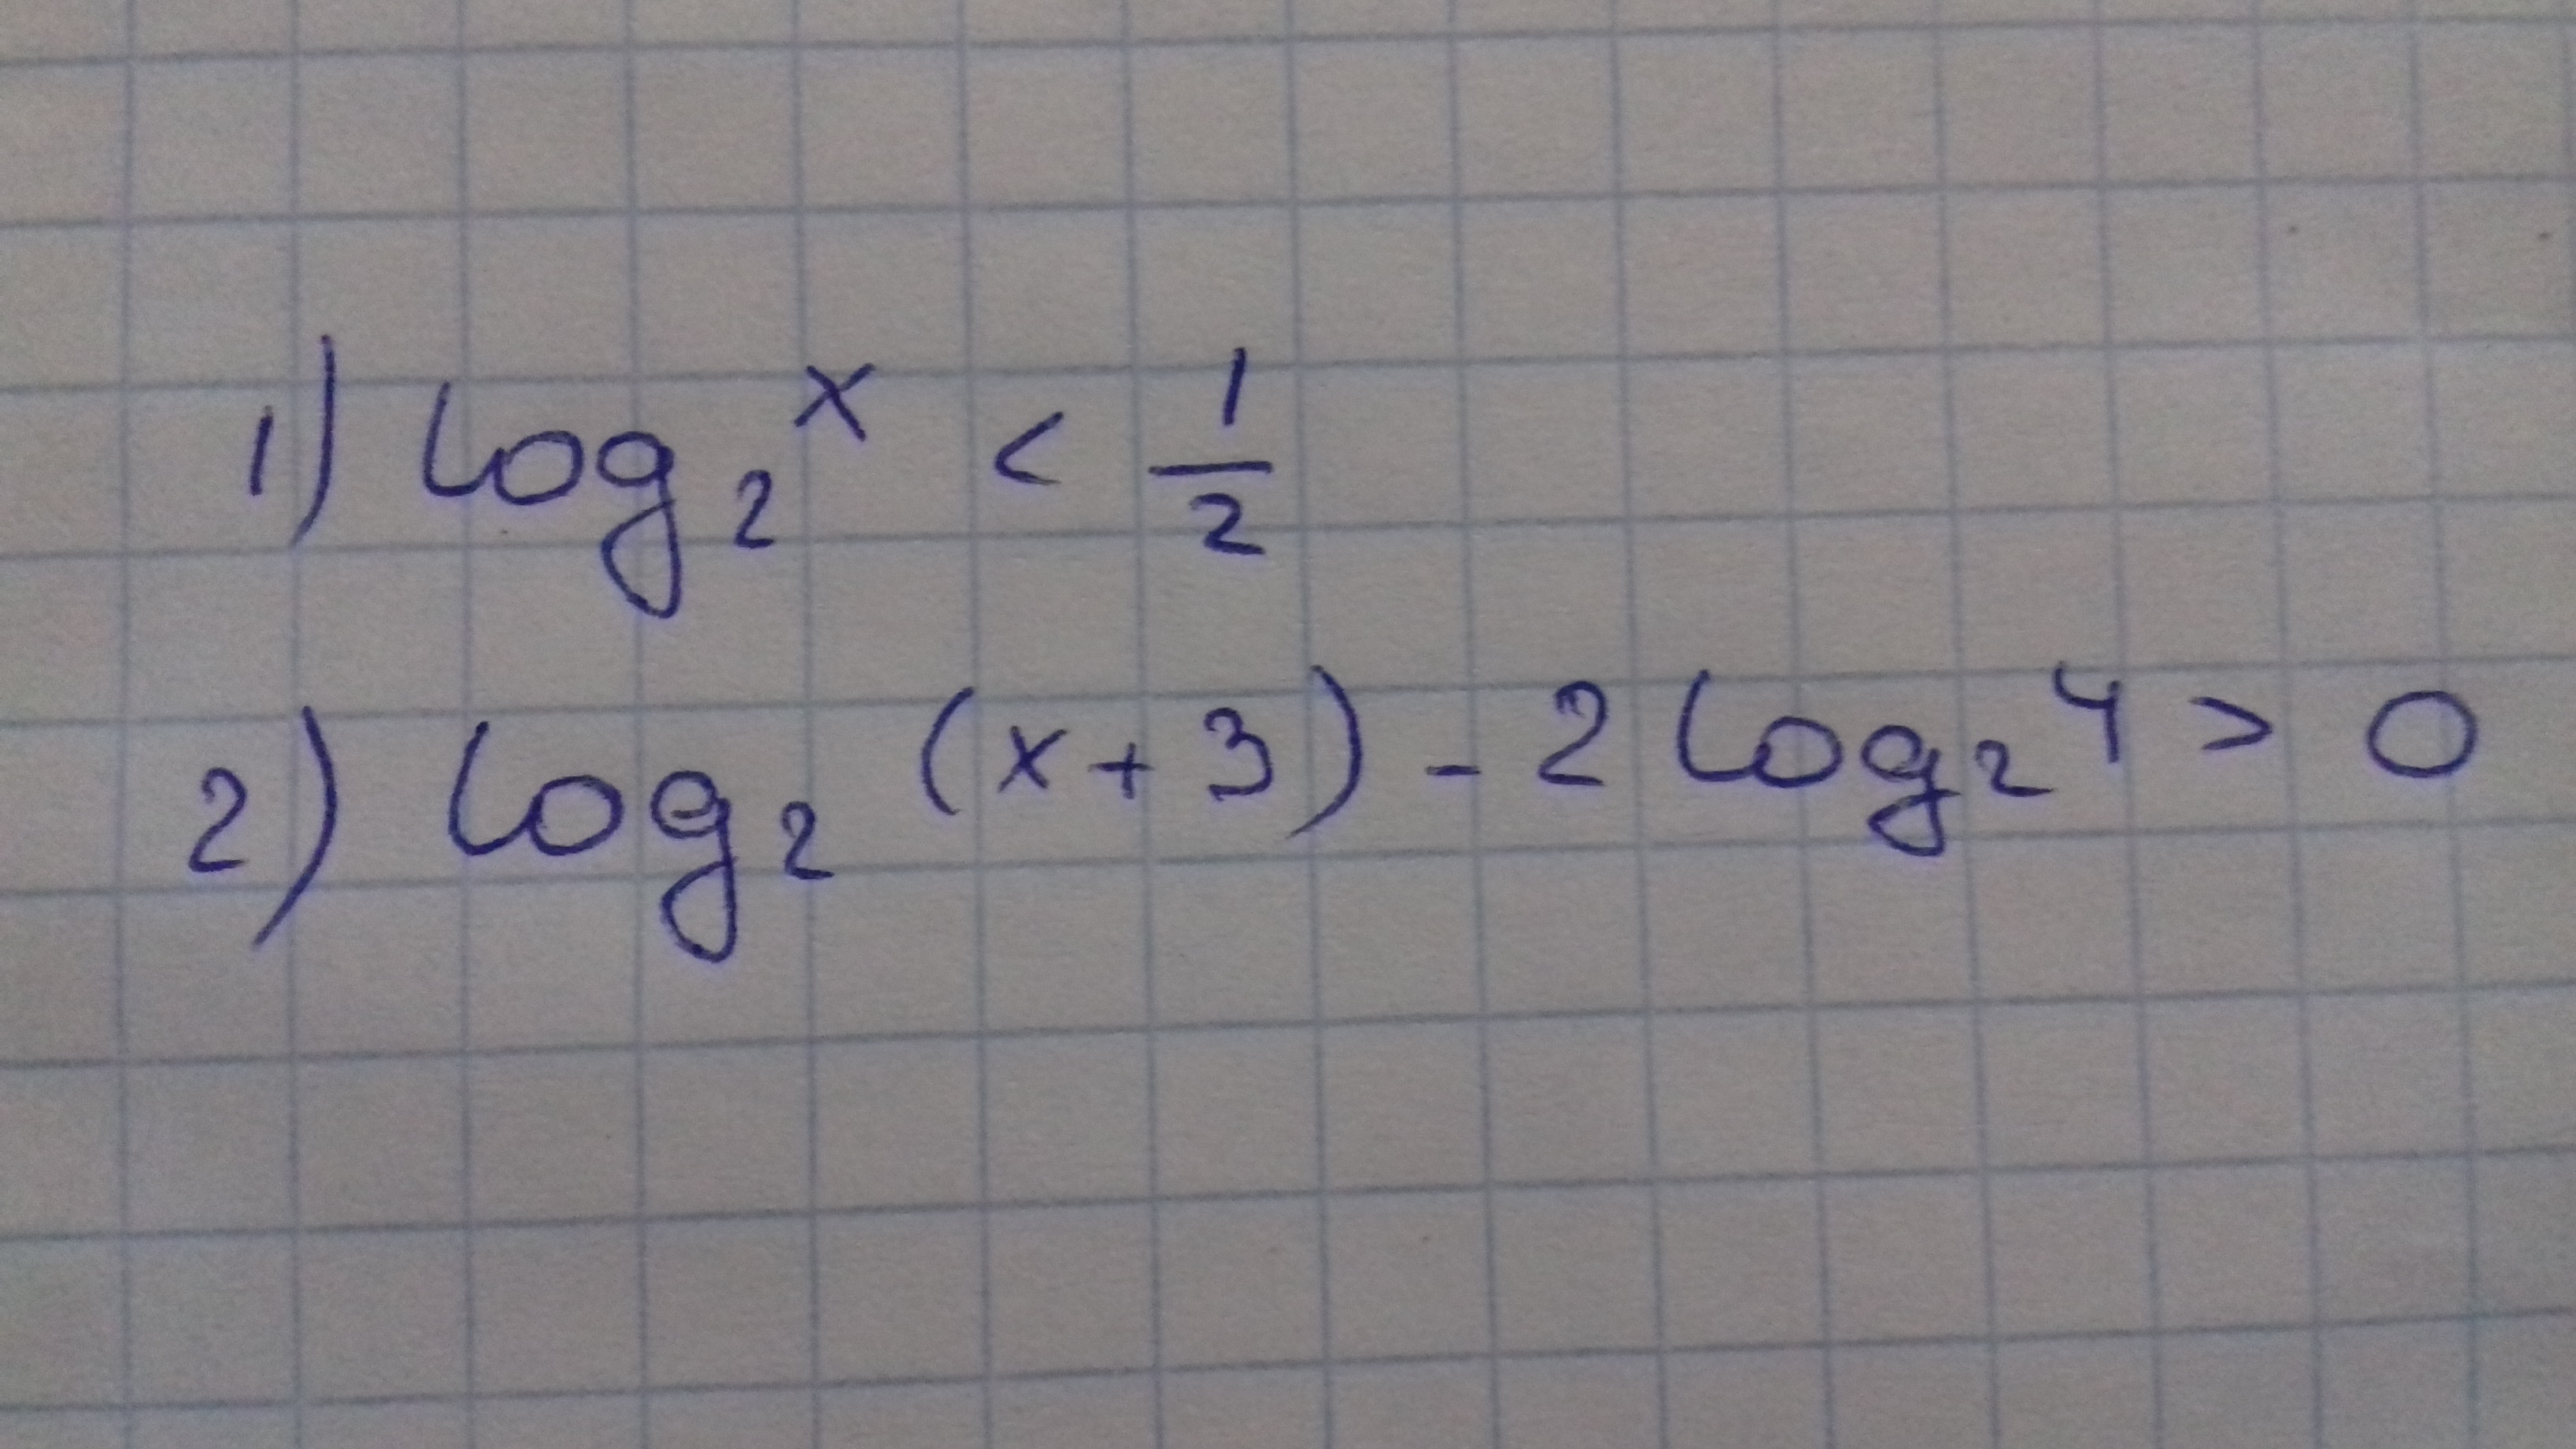 1) log₂ˣ < 1/2
2) log₂⁽ˣ⁺³⁾ - 2 log₂⁴ > 0